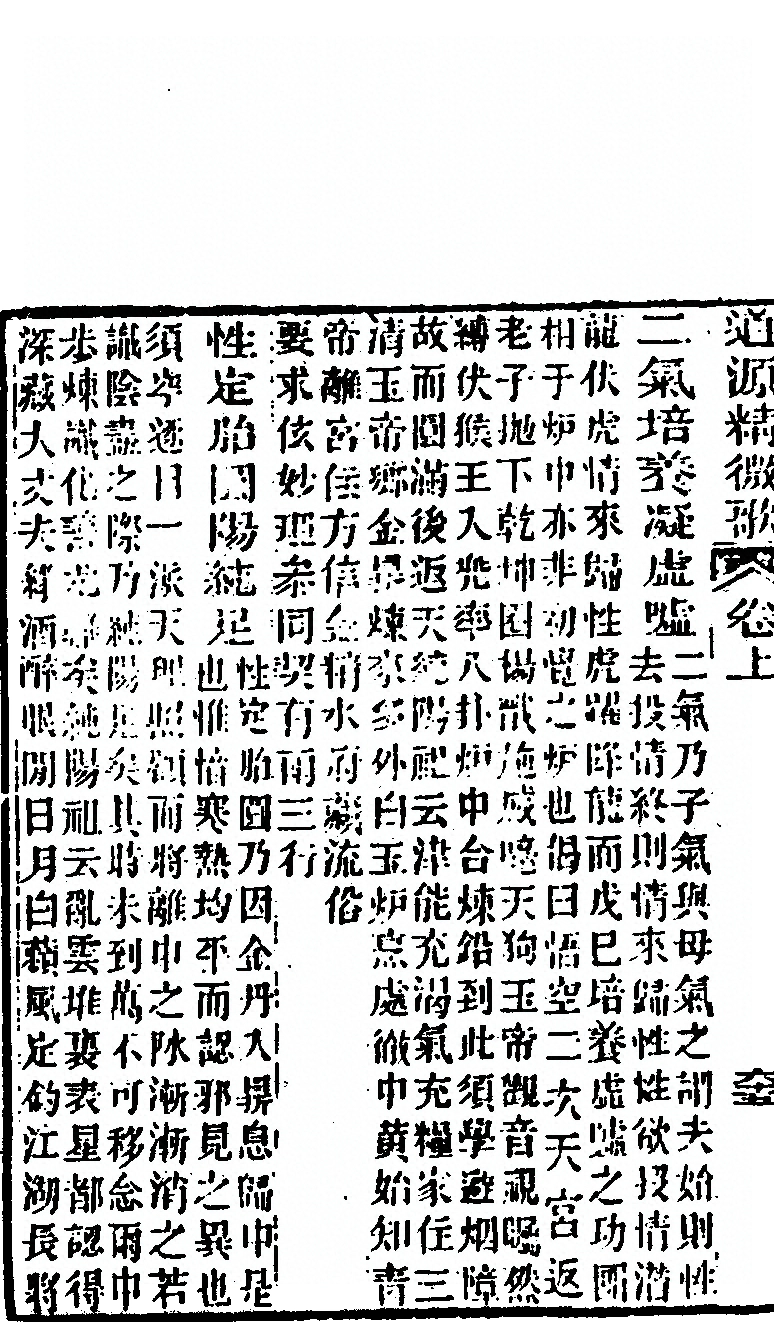 道源精微歌 卷上 六十五
二氣培養凝虛噓二氣乃子氣與母氣之謂夫始則性
去投情終則情來歸性性欲投情潛
龍伏虎情來歸性虎躍降龍而戊巳培養虛噓之功團
相于炉中亦非初覺之炉也偈曰悟空二次天宮返
老子拋下乾坤圈楊戩施威嗾天狗玉帝觀音視囑然
縛伏猴王入兜率八卦炉中台煉鉛到此須學避烟障
故而圓滿後返天純陽祖云津能充渴氣充糧家住三
清玉帝鄉金鼎煉來多外白玉炉烹處徹中黃始知青
帝離宮住方信金精水府藏流俗
要求伭妙理叅同契有兩三行
性定胎圓陽純足性定胎圓乃因金丹入鼎息歸中是
也惟情寒熱均平而認邪見之異也
須字遜日一派天理照顧而將離中之阴漸漸消之若
識陰盡之際乃純陽足矣其時未到萬不可移念爾中
步煉識化善光壽矣純陽祖云亂雲堆裏表星都認得
深藏大丈夫綠酒醉眼閒日月白蘋風定釣江湖長將